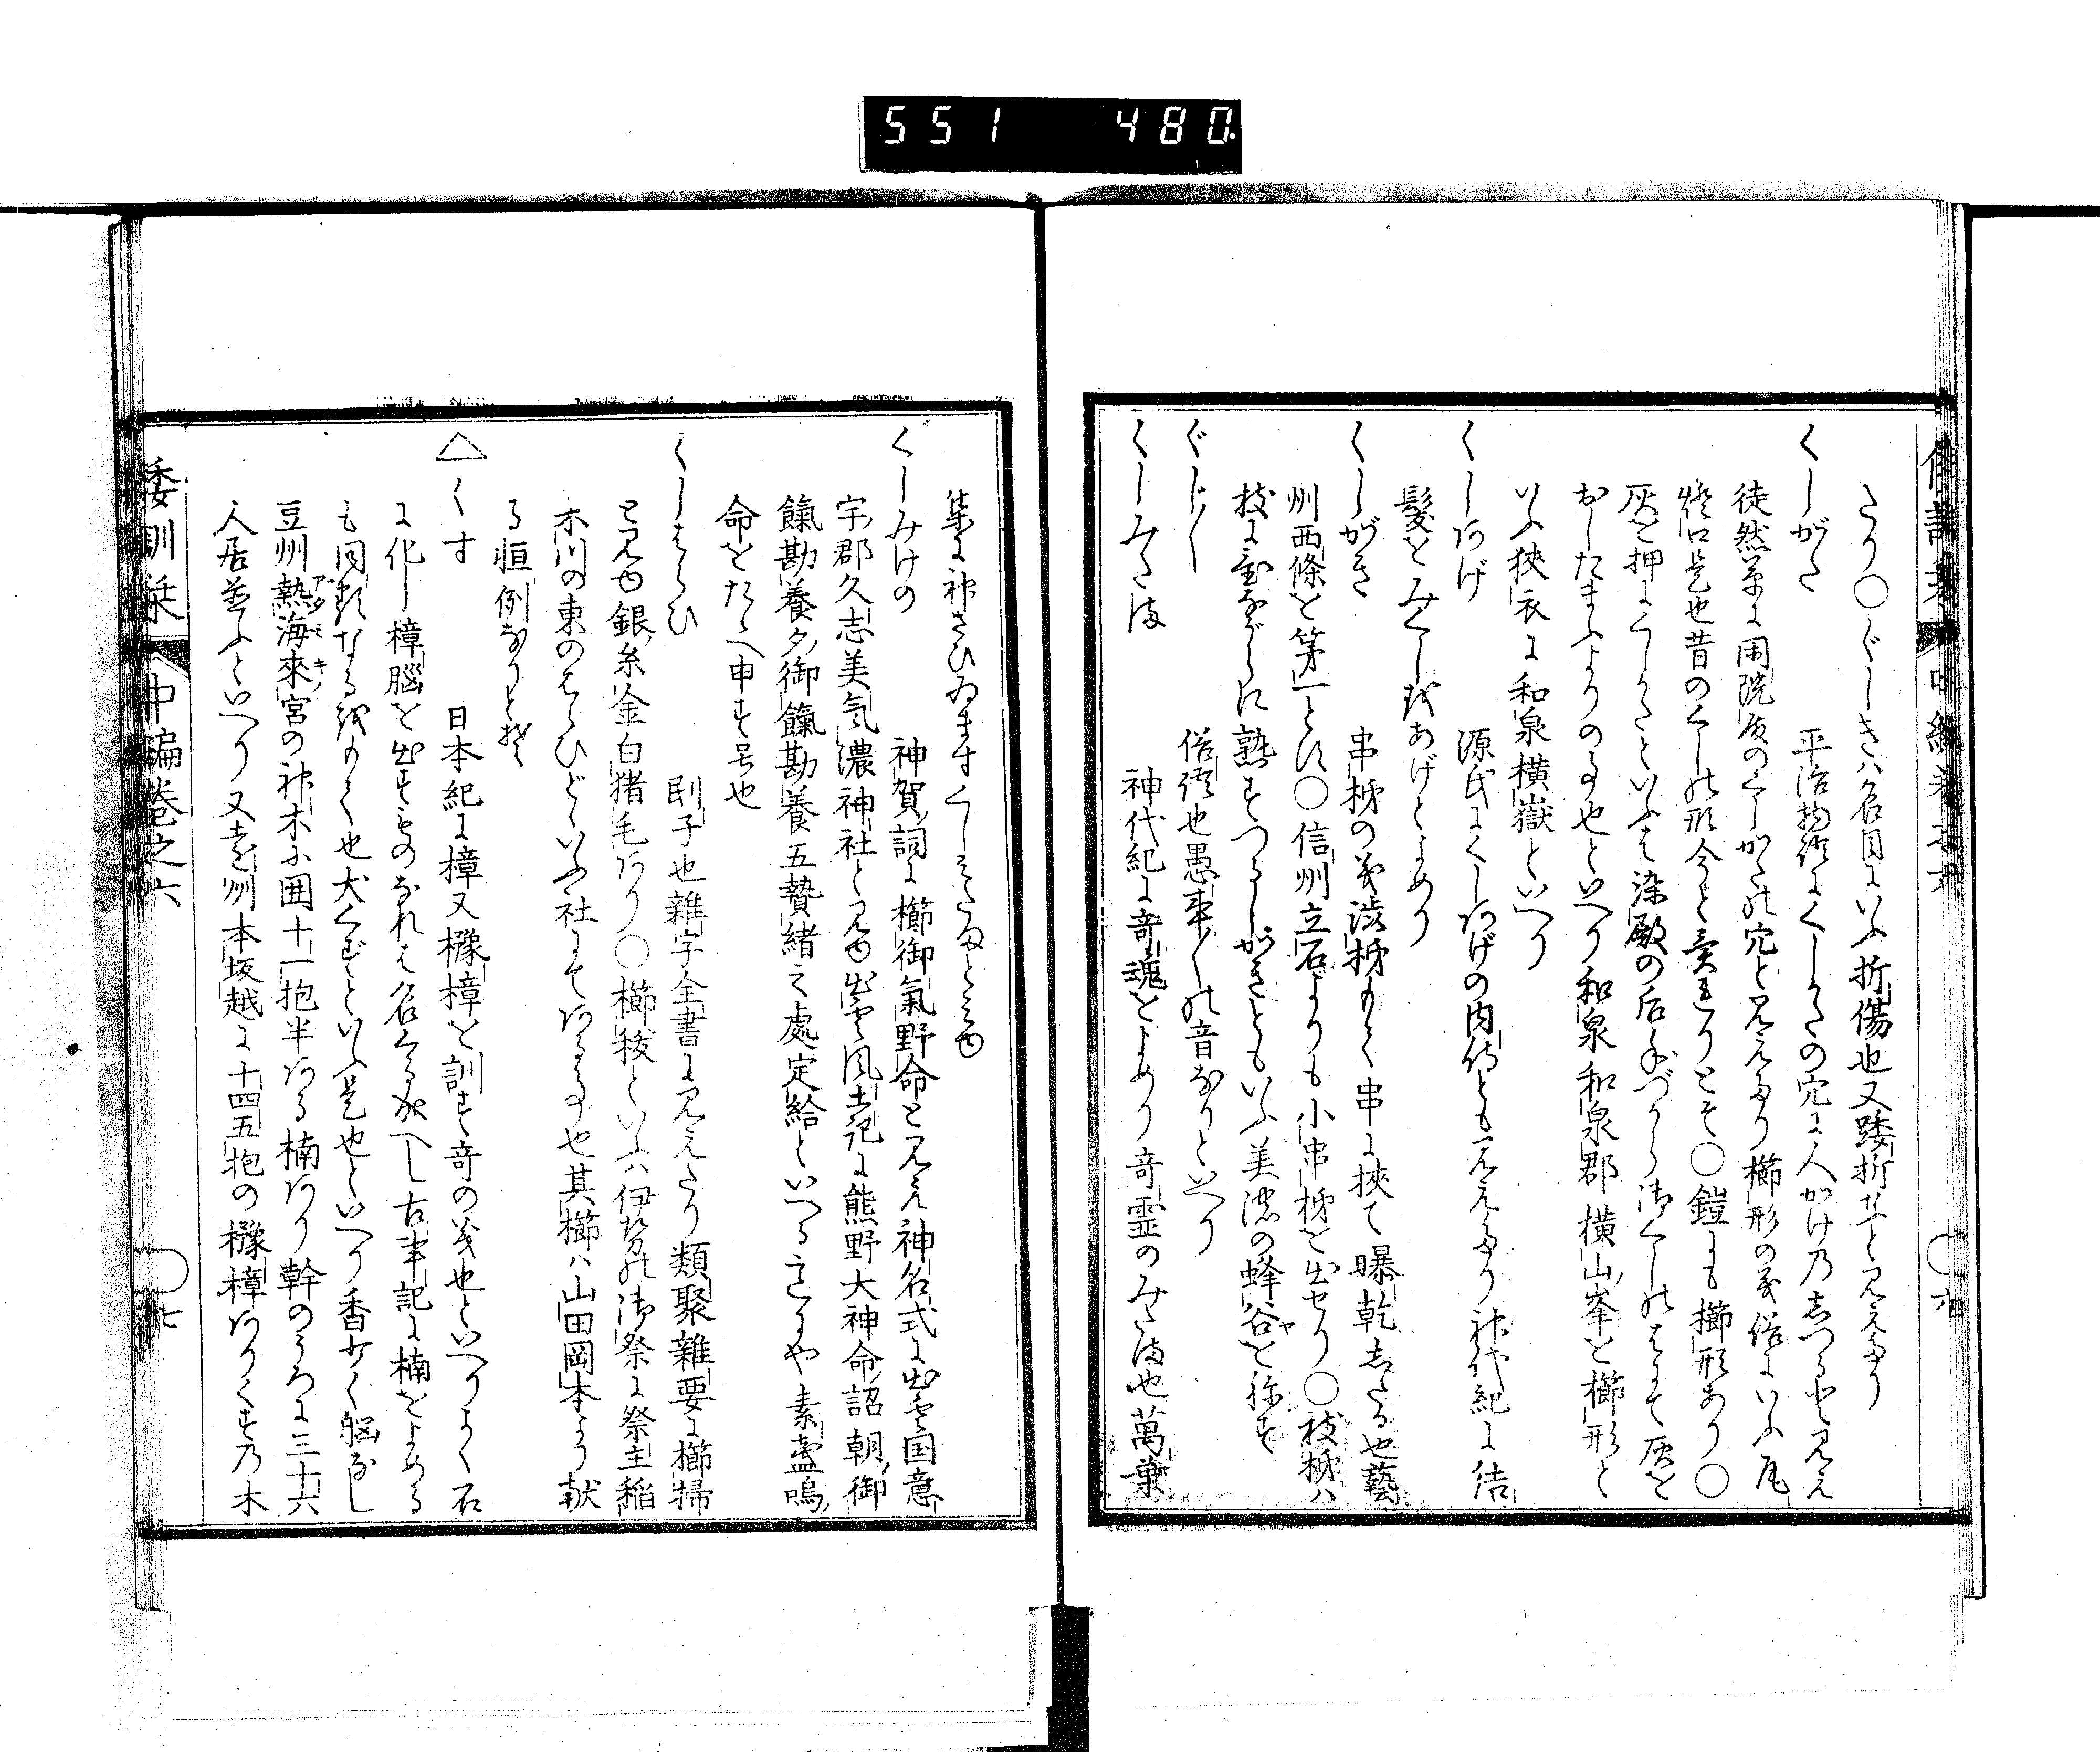 551 480
たり○ぐしきハ名目にいふ折傷也又踒折なと見えたり
くしがた 平治物語にくしかたの穴に人かけ乃しつる歟見え
徒然草に閑院殿のくしかたの穴と見えたり櫛形の義俗にいふ瓦
燈口是也昔のくしの形今と異れりとそ○鎧にも櫛形あり○
灰を押にくしかたといふは染殿の后手づから御くしのはにて灰を
おしたまふよりの事也といへり和泉和泉郡横山峯を櫛形と
いふ狭衣に和泉横嶽といへり
くしあげ 源氏にくしあげの内侍とも見えたり神代紀に結
髪をみくしをあげとよめり
くしがき 串柹の義渋柹をもて串に挾て曝乾したる也藝
州西條を第一とす○信州立石よりも小串柹を出せり○枝柹ハ
枝になからに熟すつるしがきともいふ美濃の蜂谷を称す
ぐじ〱 俗語也愚車〱の音なりといへり
くしみたま 神代紀に奇魂をよめり奇霊のみたま也萬葉
集に神さひゐますくしみたまとみゆ
くしみけの 神賀詞に櫛御氣野命と見え神名式に出雲国意
宇郡久志美気濃神社と見ゆ出雲風土記に熊野大神命詔朝御
餼勘養夕御餼勘養五贄緒之處定給といへる是にや素盞嗚
命をたゝへ申す号也
くしはらひ 刷子也雜字全書に見えたり類聚雜要に櫛掃
と見ゆ銀糸金白猪毛あり○櫛祓といふハ伊勢の御祭に祭主稲
木川の東のはらひどといふ社にてある事也其櫛ハ山田岡本より献
る恒例なりとそ
△くす 日本紀に樟又櫲樟を訓す奇の義也といへりよく石
に化し樟腦を出すものなれは名くる成へし古事記に楠をよめる
も同類なるをもて也犬くすといふ是也といへり香少く腦なし
豆州熱海來宮の神木ハ囲十一抱半ある楠あり幹のうろに三十六
人居並ふといへり又遠州本坂越に十四五抱の櫲樟ありくす乃木
倭訓栞 中編卷之六 ○七